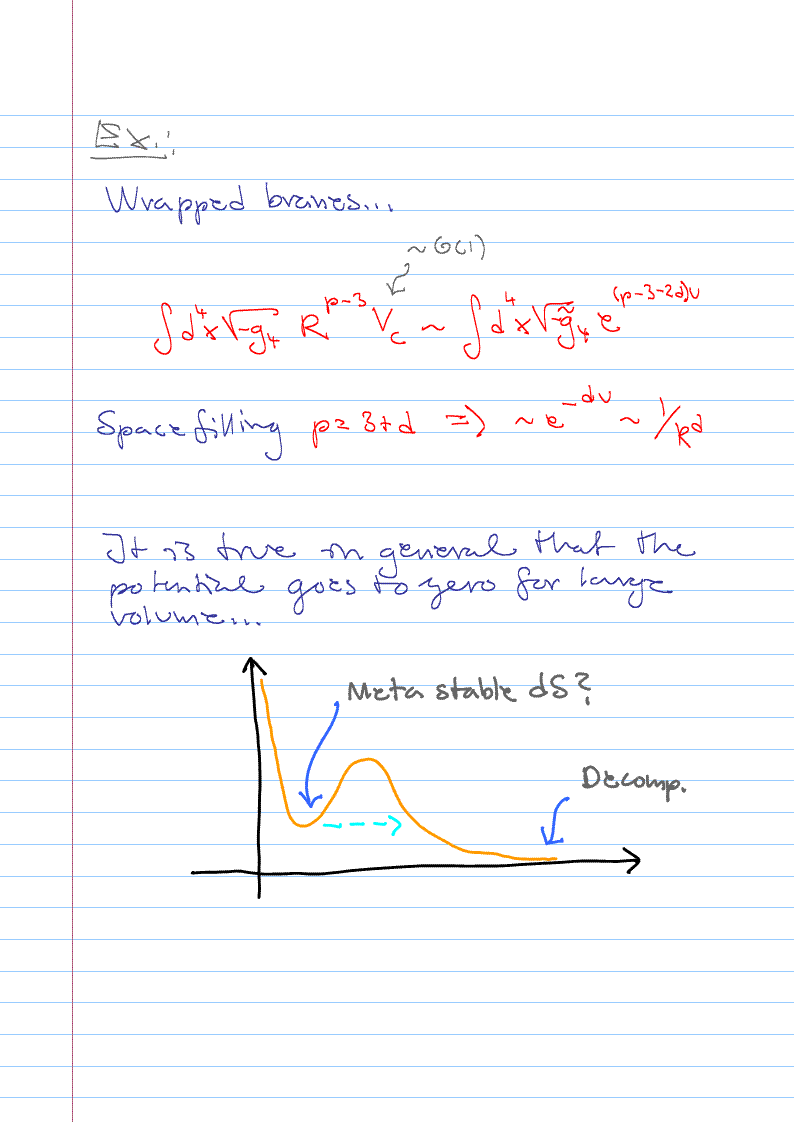 Ex.:
Wrapped branes...
~ O(1)
∫d⁴x √-g₄ R^{p-3} V_c ~ ∫d⁴x √-g̃₄ e^{(p-3-2d)υ}
Space filling p = 3+d ⇒ ~ e^{-dυ} ~ 1/R^d
It is true in general that the
potential goes to zero for large
volume...
Meta stable dS?
Decomp.